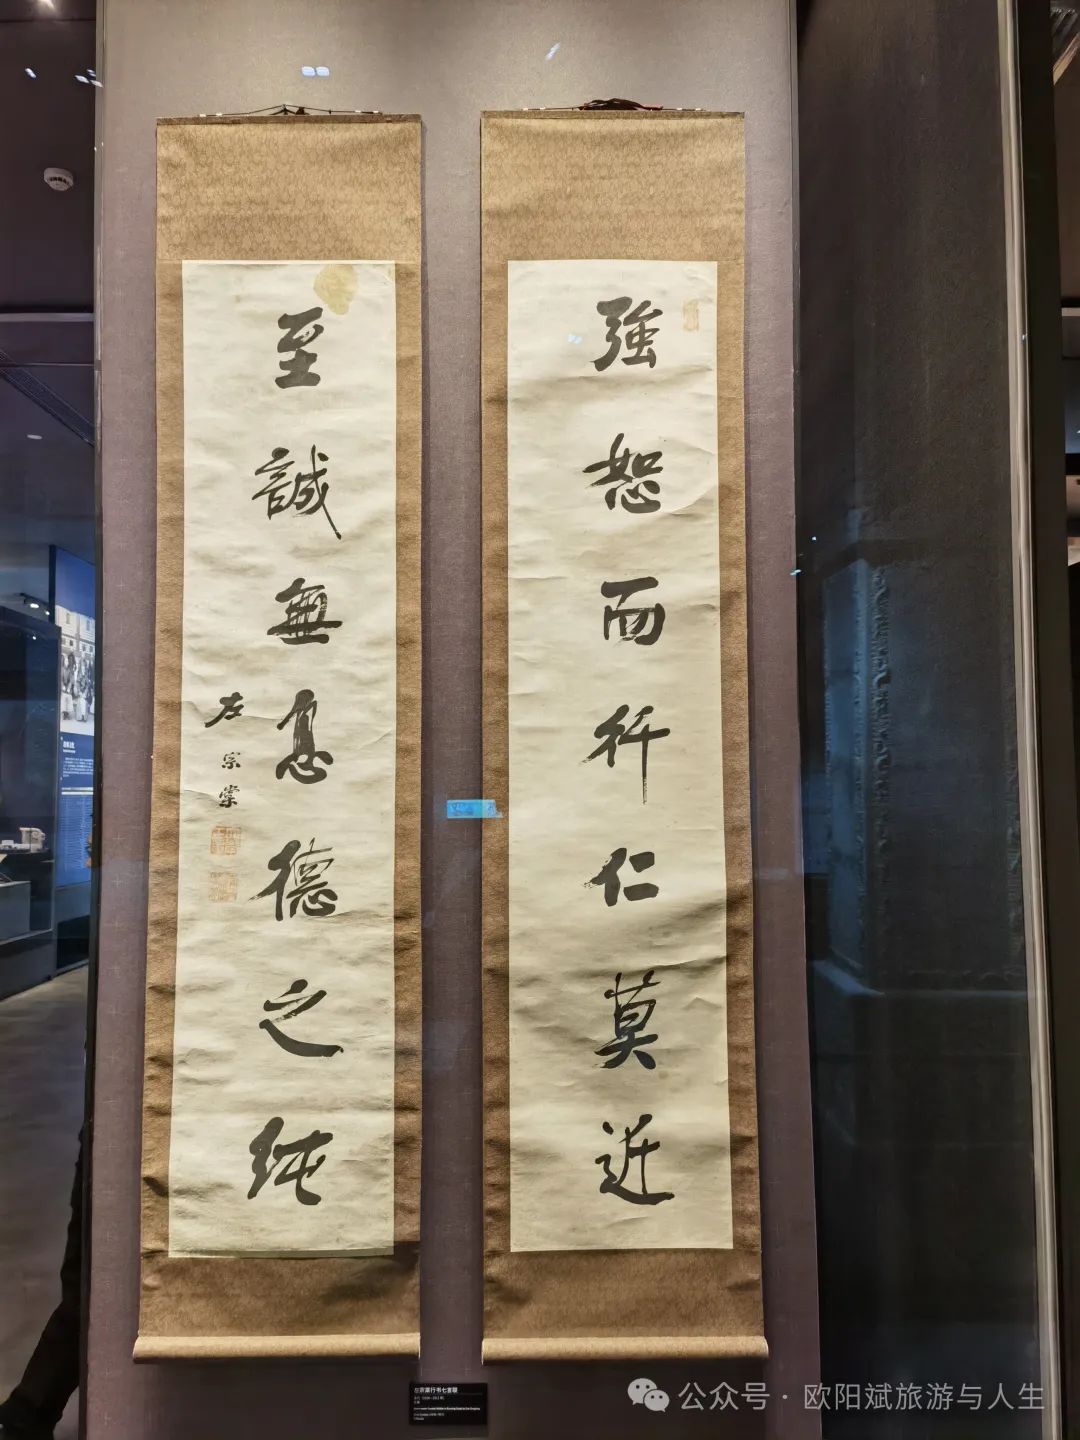 強恕而行仁莫近
至誠無息德之纯
左宗棠
左宗棠行书七言联
公众号·欧阳斌旅游与人生